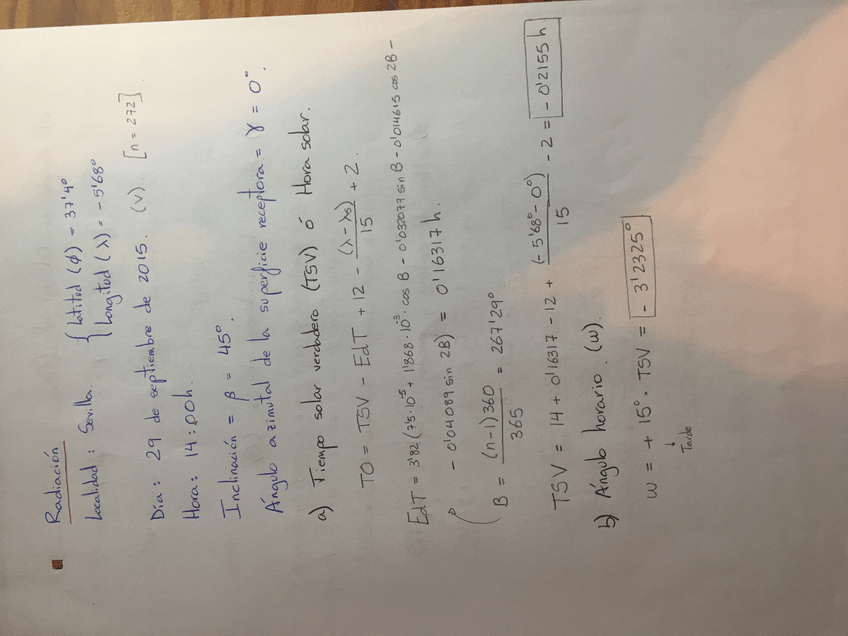 Radiación
Localidad: Sevilla. { Latitud (ϕ) = 37'4º
Longitud (λ) = -5'68º
Día: 29 de septiembre de 2015. (V) [n = 272]
Hora: 14:00h.
Inclinación = β = 45º.
Ángulo azimutal de la superficie receptora = γ = 0º.
a) Tiempo solar verdadero (TSV) ó Hora solar.
TO = TSV - EdT + 12 - (λ-λs)/15 + 2.
EdT = 3'82 (7'5·10⁻⁵ + 1'868·10⁻³·cos B - 0'032077 sin B - 0'014615 cos 2B -
- 0'04089 sin 2B) = 0'16317 h.
B = (n-1)360/365 = 267'29º
TSV = 14 + 0'16317 - 12 + (-5'68º-0º)/15 - 2 = - 0'2155 h
b) Ángulo horario (ω).
ω = + 15º · TSV = - 3'2325º
↓
Tarde